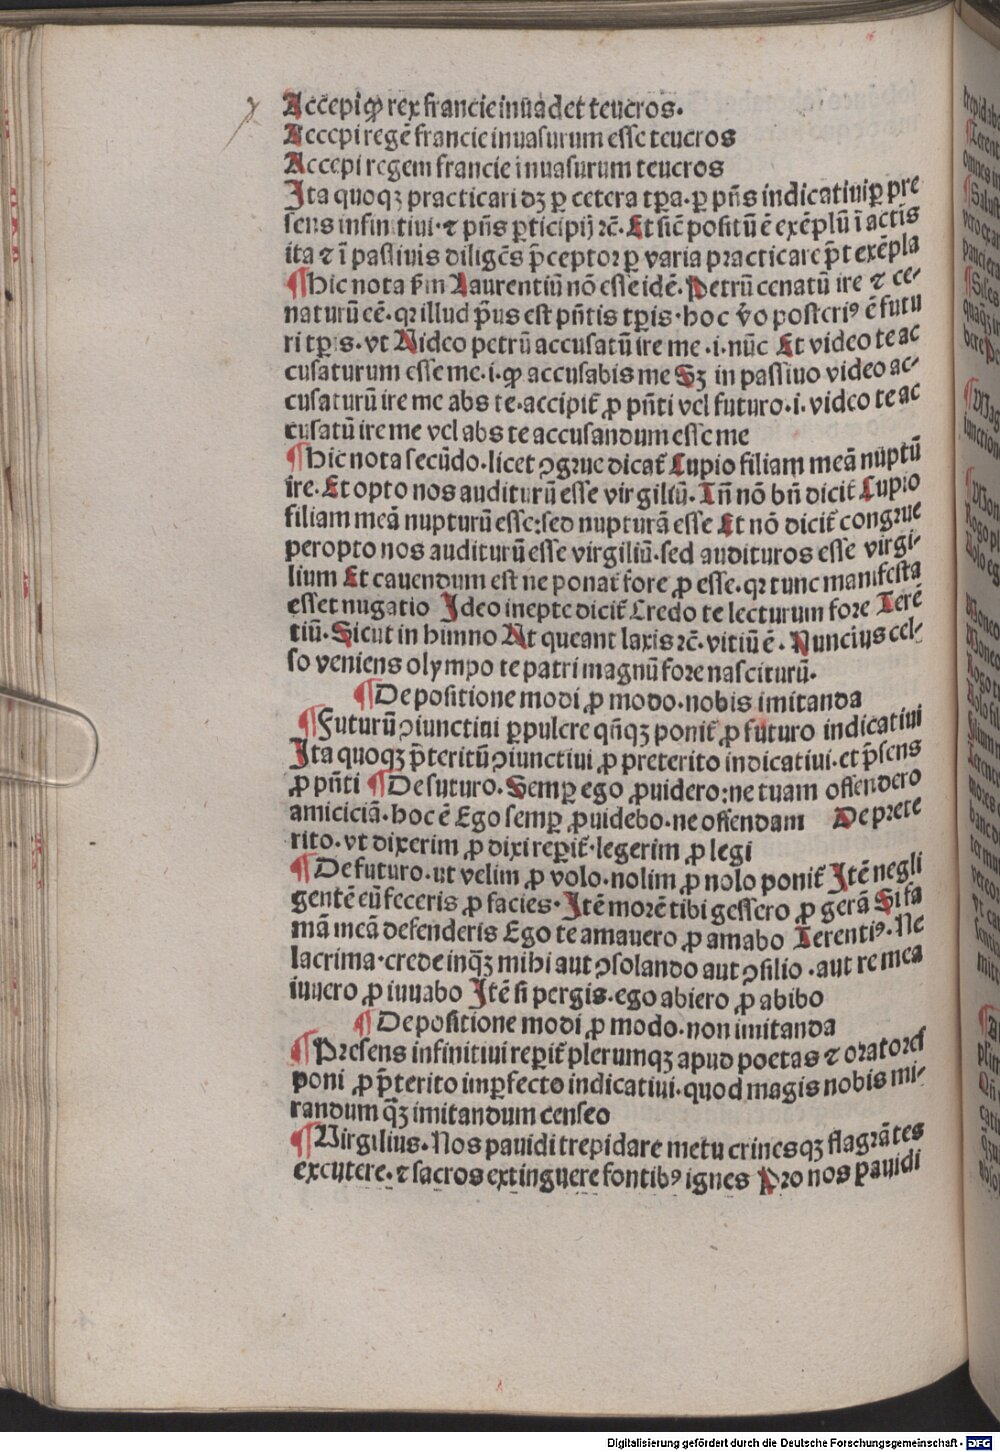 Accepi ꝙ rex francie inuadet teucros.
Accepi regē francie inuasurum esse teucros
Accepi regem francie inuasurum teucros
Ita quoqꝫ practicari dꝫ ꝑ cetera tꝑa. ꝑ pn̄s indicatiui ꝑ pre
sens infinitiui. ⁊ pn̄s ꝑticipij ⁊c̄. Et sic̄ positū ē exēplū ī actis
ita ⁊ ī passiuis diligēs p̄ceptor ꝑ varia practicare p̄t exēpla
¶ Hic nota ẜm Laurentiū nō esse idē. Petrū cenatū ire ⁊ ce-
naturū eē. qꝛ illud pꝰus est pn̄tis tꝑis. hoc v̄o posteriꝰ ē futu
ri tꝑis. vt Video petrū accusatū ire me .i. nūc Et video te ac
cusaturum esse me .i. ꝙ accusabis me Sꝫ in passiuo video ac-
cusaturū ire me abs te. accipit̄ ꝓ pn̄ti vel futuro .i. video te ac
cusatū ire me vel abs te accusandum esse me
¶ Hic nota secūdo. licet ꝯgrue dicat̄ Cupio filiam meā nuptū
ire. Et opto nos auditurū esse virgiliū. Tn̄ nō bn̄ dicit̄ Cupio
filiam meā nupturū esse: sed nupturā esse Et nō dicit̄ congrue
peropto nos auditurū esse virgiliū. sed audituros esse virgi-
lium Et cauendum est ne ponat̄ fore ꝓ esse. qꝛ tunc manifesta
esset nugatio Ideo inepte dicit̄ Credo te lecturum fore Terē
tiū. Sicut in himno Vt queant laxis ⁊c̄. vitiū ē. Nuncius cel-
so veniens olympo te patri magnū fore nasciturū.
¶ De positione modi ꝓ modo. nobis imitanda
¶ Futurū ꝯiunctiui ꝑpulcre qn̄qꝫ ponit̄ ꝓ futuro indicatiui
Ita quoqꝫ p̄teritū ꝯiunctiui ꝓ preterito indicatiui. et p̄sens
ꝓ pn̄ti ¶ De futuro. Semꝑ ego ꝓuidero: ne tuam offendero
amiciciā. hoc ē Ego semꝑ ꝓuidebo. ne offendam De prete
rito. vt dixerim ꝓ dixi reperit̄. legerim ꝓ legi
¶ De futuro. ut velim ꝓ volo. nolim ꝓ nolo ponit̄ Itē negli
gentē eū feceris ꝓ facies. Itē morē tibi gessero ꝓ gerā Si fa
mā meā defenderis Ego te amauero ꝓ amabo Terentiꝰ. Ne
lacrima. crede inq̄ꝫ mihi aut ꝯsolando aut ꝯsilio . aut re mea
iuuero ꝓ iuuabo Itē si pergis. ego abiero ꝓ abibo
¶ De positione modi ꝓ modo. non imitanda
¶ Presens infinitiui reperit̄ plerumqꝫ apud poetas ⁊ oratores
poni ꝓ p̄terito imꝑfecto indicatiui. quod magis nobis mi-
randum q̄ꝫ imitandum censeo
¶ Virgilius. Nos pauidi trepidare metu crinesqꝫ flagrātes
excutere. ⁊ sacros extinguere fontibꝰ ignes Pro nos pauidi
Digitalisierung gefördert durch die Deutsche Forschungsgemeinschaft - DFG